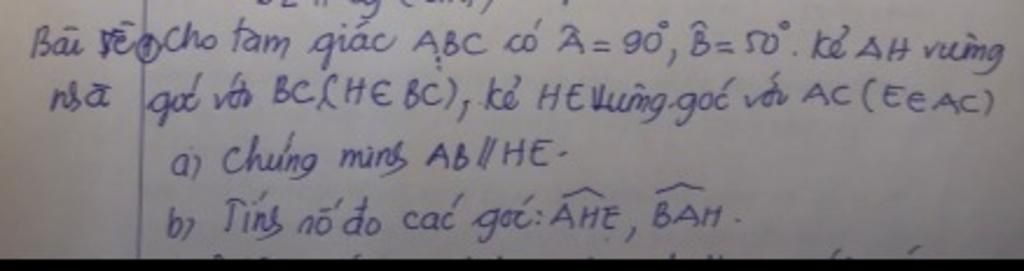 Bài về ① Cho tam giác ABC có Â = 90°, B̂ = 50°. Kẻ AH vuông
nhà góc với BC (H ∈ BC), kẻ HE vuông góc với AC (E ∈ AC)
a) Chứng minh AB // HE.
b) Tính số đo các góc: \widehat{AHE}, \widehat{BAH}.